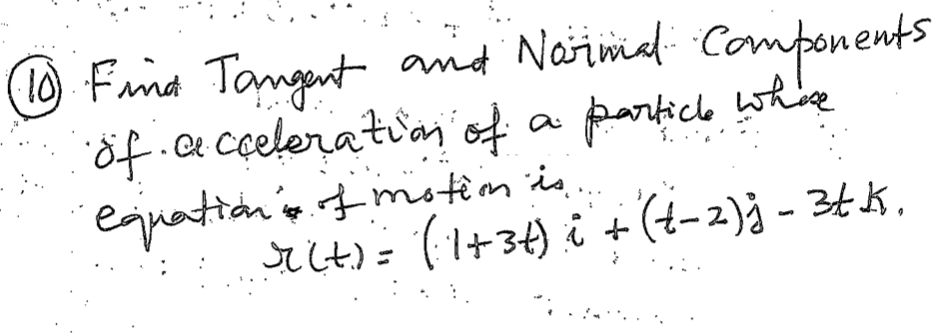 (10) Find Tangent and Normal Components
of acceleration of a particle whose
equation of motion is
r(t) = (1+3t) i + (t-2)j - 3t k.